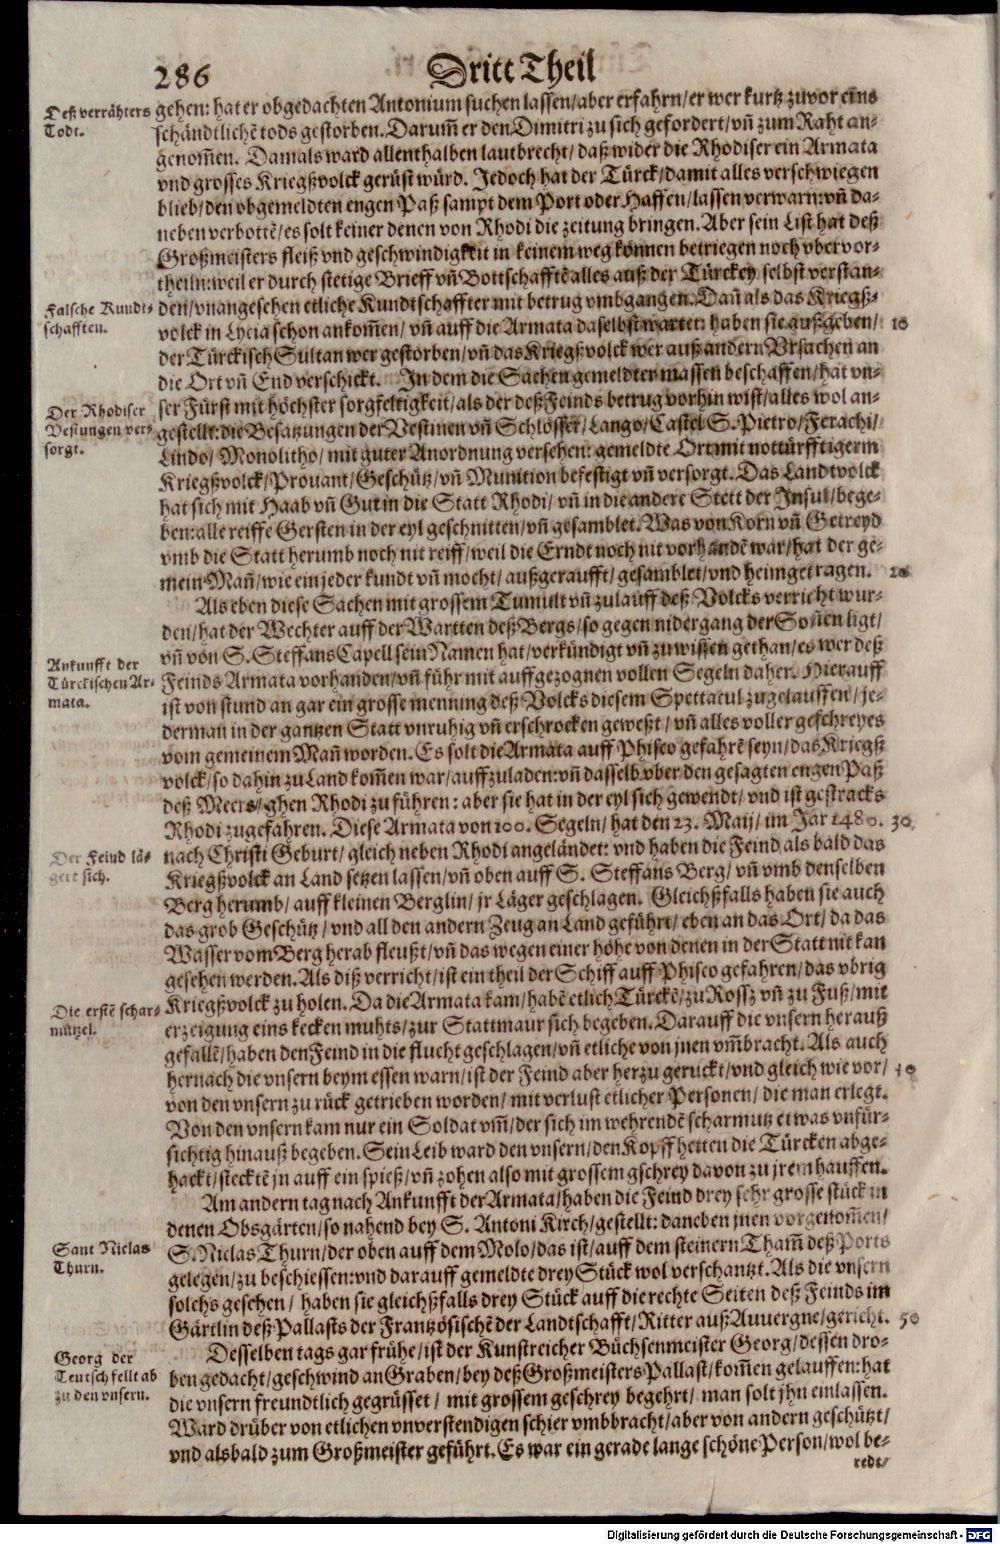 286
Dritt Theil
Deß verrähters
Todt.
gehen: hat er obgedachten Antonium suchen lassen/ aber erfahrn/ er wer kurtz zuvor eins
schändtlichẽ tods gestorben. Darum̃ er den Dimitri zu sich gefordert/ vñ zum Raht an-
genom̃en. Damals ward allenthalben lautbrecht/ daß wider die Rhodiser ein Armata
vnd grosses Kriegßvolck gerüst würd. Jedoch hat der Türck/ damit alles verschwiegen
blieb/ den obgemeldten engen Paß sampt dem Port oder Haffen/ lassen verwarn: vñ da-
neben verbottẽ/ es solt keiner denen von Rhodi die zeitung bringen. Aber sein List hat deß
Großmeisters fleiß vnd geschwindigkeit in keinem weg können betriegen noch vbervor-
theiln: weil er durch stetige Brieff vñ Bottschafftẽ alles auß der Türckey selbst verstan-
Falsche Kundt-
schafften.
den/ vnangesehen etliche Kundtschaffter mit betrug vmbgangen. Dañ als das Kriegß-
volck in Lycia schon ankom̃en/ vñ auff die Armata daselbst wartet: haben sie außgeben/ 10
der Türckisch Sultan wer gestorben/ vñ das Kriegßvolck wer auß andern Vrsachen an
die Ort vñ End verschickt. In dem die Sachen gemeldter massen beschaffen/ hat vn-
Der Rhodiser
Vestungen ver-
sorgt.
ser Fürst mit höchster sorgfeltigkeit/ als der deß Feinds betrug vorhin wist/ alles wol an-
gestellt: die Besatzungen der Vestinen vñ Schlösser/ Lango/ Castel S. Pietro/ Ferachi/
Lindo/ Monolitho/ mit guter Anordnung versehen: gemeldte Ort mit nottürfftigerm
Kriegßvolck/ Provant/ Geschütz/ vñ Munition befestigt vñ versorgt. Das Landtvolck
hat sich mit Haab vñ Gut in die Statt Rhodi/ vñ in die andere Stett der Insul/ bege-
ben: alle reiffe Gersten in der eyl geschnitten/ vñ gesamblet. Was von Korn vñ Getreyd
vmb die Statt herumb noch nit reiff/ weil die Erndt noch nit vorhandẽ war/ hat der ge-
mein Mañ/ wie ein jeder kundt vñ mocht/ außgeraufft/ gesamblet/ vnd heimgetragen. 20
Als eben diese Sachen mit grossem Tumult vñ zulauff deß Volcks verricht wur-
den/ hat der Wechter auff der Wartten deß Bergs/ so gegen nidergang der Soñen ligt/
Ankunfft der
Türckischen Ar-
mata.
vñ von S. Steffans Capell sein Namen hat/ verkündigt vñ zu wissen gethan/ es wer deß
Feinds Armata vorhanden/ vñ führ mit auffgezognen vollen Segeln daher. Hierauff
ist von stund an gar ein grosse menning deß Volcks diesem Spettacul zugelauffen/ je-
dermañ in der gantzen Statt vnruhig vñ erschrocken geweßt/ vñ alles voller geschreyes
vom gemeinem Mañ worden. Es solt die Armata auff Phisco gefahrẽ seyn/ das Kriegß
volck/ so dahin zu Land kom̃en war/ auffzuladen: vñ dasselb vber den gesagten engen Paß
deß Meers/ ghen Rhodi zu führen: aber sie hat in der eyl sich gewendt/ vnd ist gestracks
Rhodi zugefahren. Diese Armata von 100. Segeln/ hat den 23. Maij/ im Jar 1480. 30
Der Feind lä-
gert sich.
nach Christi Geburt/ gleich neben Rhodi angeländet: vnd haben die Feind als bald das
Kriegßvolck an Land setzen lassen/ vñ oben auff S. Steffans Berg/ vñ vmb denselben
Berg herumb/ auff kleinen Berglin/ jr Läger geschlagen. Gleichßfalls haben sie auch
das grob Geschütz/ vnd all den andern Zeug an Land geführt/ eben an das Ort/ da das
Wasser vom Berg herab fleußt/ vñ das wegen einer höhe von denen in der Statt nit kan
gesehen werden. Als diß verricht/ ist ein theil der Schiff auff Phisco gefahren/ das vbrig
Die erstẽ schar-
mützel.
Kriegßvolck zu holen. Da die Armata kam/ habẽ etlich Türckẽ/ zu Rossz vñ zu Fuß/ mit
erzeigung eins kecken muhts/ zur Stattmaur sich begeben. Darauff die vnsern herauß
gefallẽ/ haben den Feind in die flucht geschlagen/ vñ etliche von jnen vm̃bracht. Als auch
hernach die vnsern beym essen warn/ ist der Feind aber herzu geruckt/ vnd gleich wie vor/ 40
von den vnsern zu rück getrieben worden/ mit verlust etlicher Personen/ die man erlegt.
Von den vnsern kam nur ein Soldat vm̃/ der sich im wehrendẽ scharmutz etwas vnfür-
sichtig hinauß begeben. Sein Leib ward den vnsern/ den Kopff hetten die Türcken abge-
hackt/ stecktẽ jn auff ein spieß/ vñ zohen also mit grossem gschrey davon zu jrem hauffen.
Am andern tag nach Ankunfft der Armata/ haben die Feind drey sehr grosse stück in
denen Obsgärten/ so nahend bey S. Antoni Kirch/ gestellt: daneben jnen vorgenom̃en/
Sant Niclas
Thurn.
S. Niclas Thurn/ der oben auff dem Molo/ das ist/ auff dem steinern Tham̃ deß Ports
gelegen/ zu beschiessen: vnd darauff gemeldte drey Stück wol verschantzt. Als die vnsern
solchs gesehen/ haben sie gleichßfalls drey Stück auff die rechte Seiten deß Feinds im
Gärtlin deß Pallasts der Frantzösischẽ der Landtschafft/ Ritter auß Auuergne/ gericht. 50
Georg der
Teutsch fellt ab
zu den vnsern.
Desselben tags gar frühe/ ist der Kunstreicher Büchsenmeister Georg/ dessen dro-
ben gedacht/ geschwind an Graben/ bey deß Großmeisters Pallast/ kom̃en gelauffen: hat
die vnsern freundtlich gegrüsset/ mit grossem geschrey begehrt/ man solt jhn einlassen.
Ward drüber von etlichen vnverstendigen schier vmbbracht/ aber von andern geschützt/
vnd alsbald zum Großmeister geführt. Es war ein gerade lange schöne Person/ wol be-
redt/
Digitalisierung gefördert durch die Deutsche Forschungsgemeinschaft - DFG